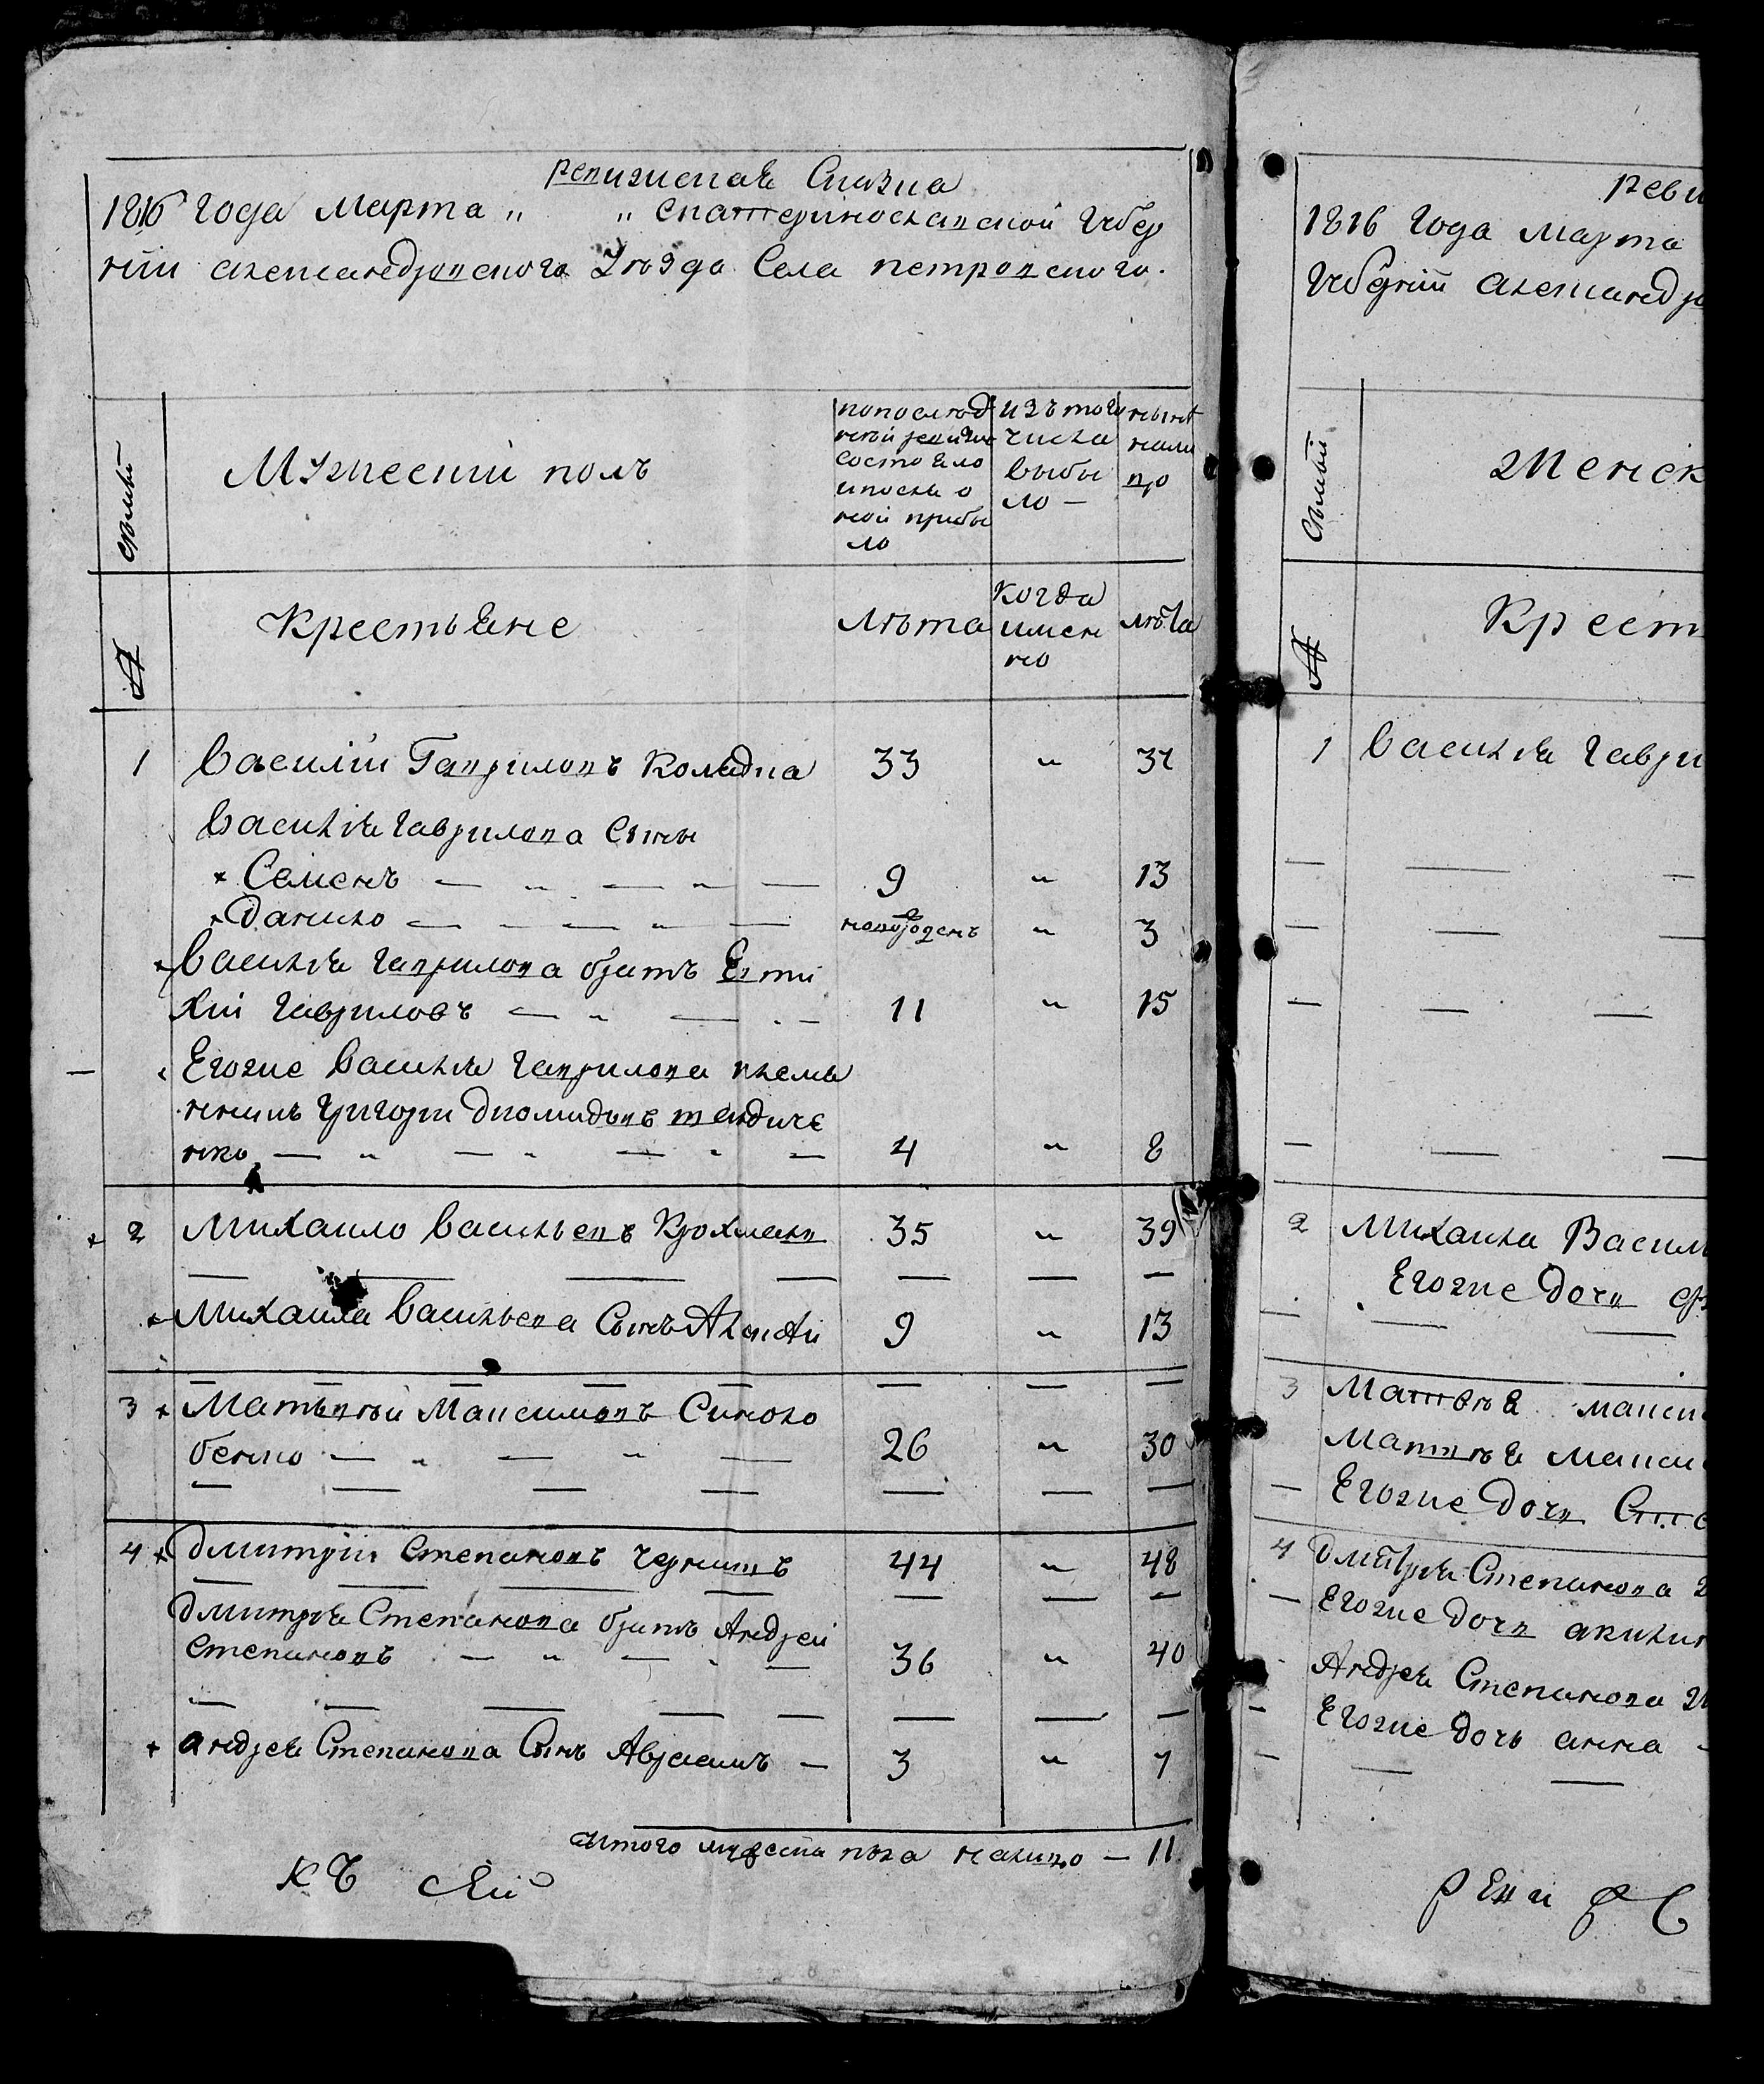 ревизская Сказка
1816 года Марта „ „ екатеринославской губер
нии александровского Уезда Села петровского.
семьи
Мужеский полъ
попослѣд
ней ревизии
состояло
ипосле о
ной прибы
ло
изъ того
числа
выбы
ло —
ныне
нали
цо
№
Крестьяне
Лѣта
когда
имен
но
лѣта
1 Василий Гавриловъ Колядка 33 „ 37
Василья гаврилова Сыны
Семенъ — „ — „ — 9 „ 13
Данило — — — „ — новорожденъ „ 3
Василья гаврилова братъ Евти
хий гавриловъ — „ — . — 11 „ 15
Егоже Василья гаврилова племя
нникъ григори диомидовъ
нко — „ — „ — „ — 4 „ 8
2 Михаило Васильевъ Крохмалв 35 „ 39
— — — — — — —
Михаила Васильева Сынъ 9 „ 13
— — — — — — — —
3 Матвѣй Максимовъ Сиволо
бенко — „ — „ — 26 „ 30
— — — — — — —
4 Дмитрий Степановъ чернишъ 44 „ 48
— — — — — — —
Дмитрея Степанова братъ Андрей
Степановъ — „ — . — 36 „ 40
— — — — — — — —
андрея Степанова Сынъ Авраамъ — 3 „ 7
итого мужеска пола налицо — 11
къ сей
реви
1816 года марта
губернии александро
семьи
Женск
№
Крест
1 Василья гаври
— — —
— — —
— — —
— — —
2 Михаила Василь
Егоже дочь
— — —
3 Матвея макси
Матвея макси
— Егоже дочь
4 Дмитрея Степанова
— Егоже дочь акилин
Андрея Степанова
— Егоже дочь анна —
— — —
реви